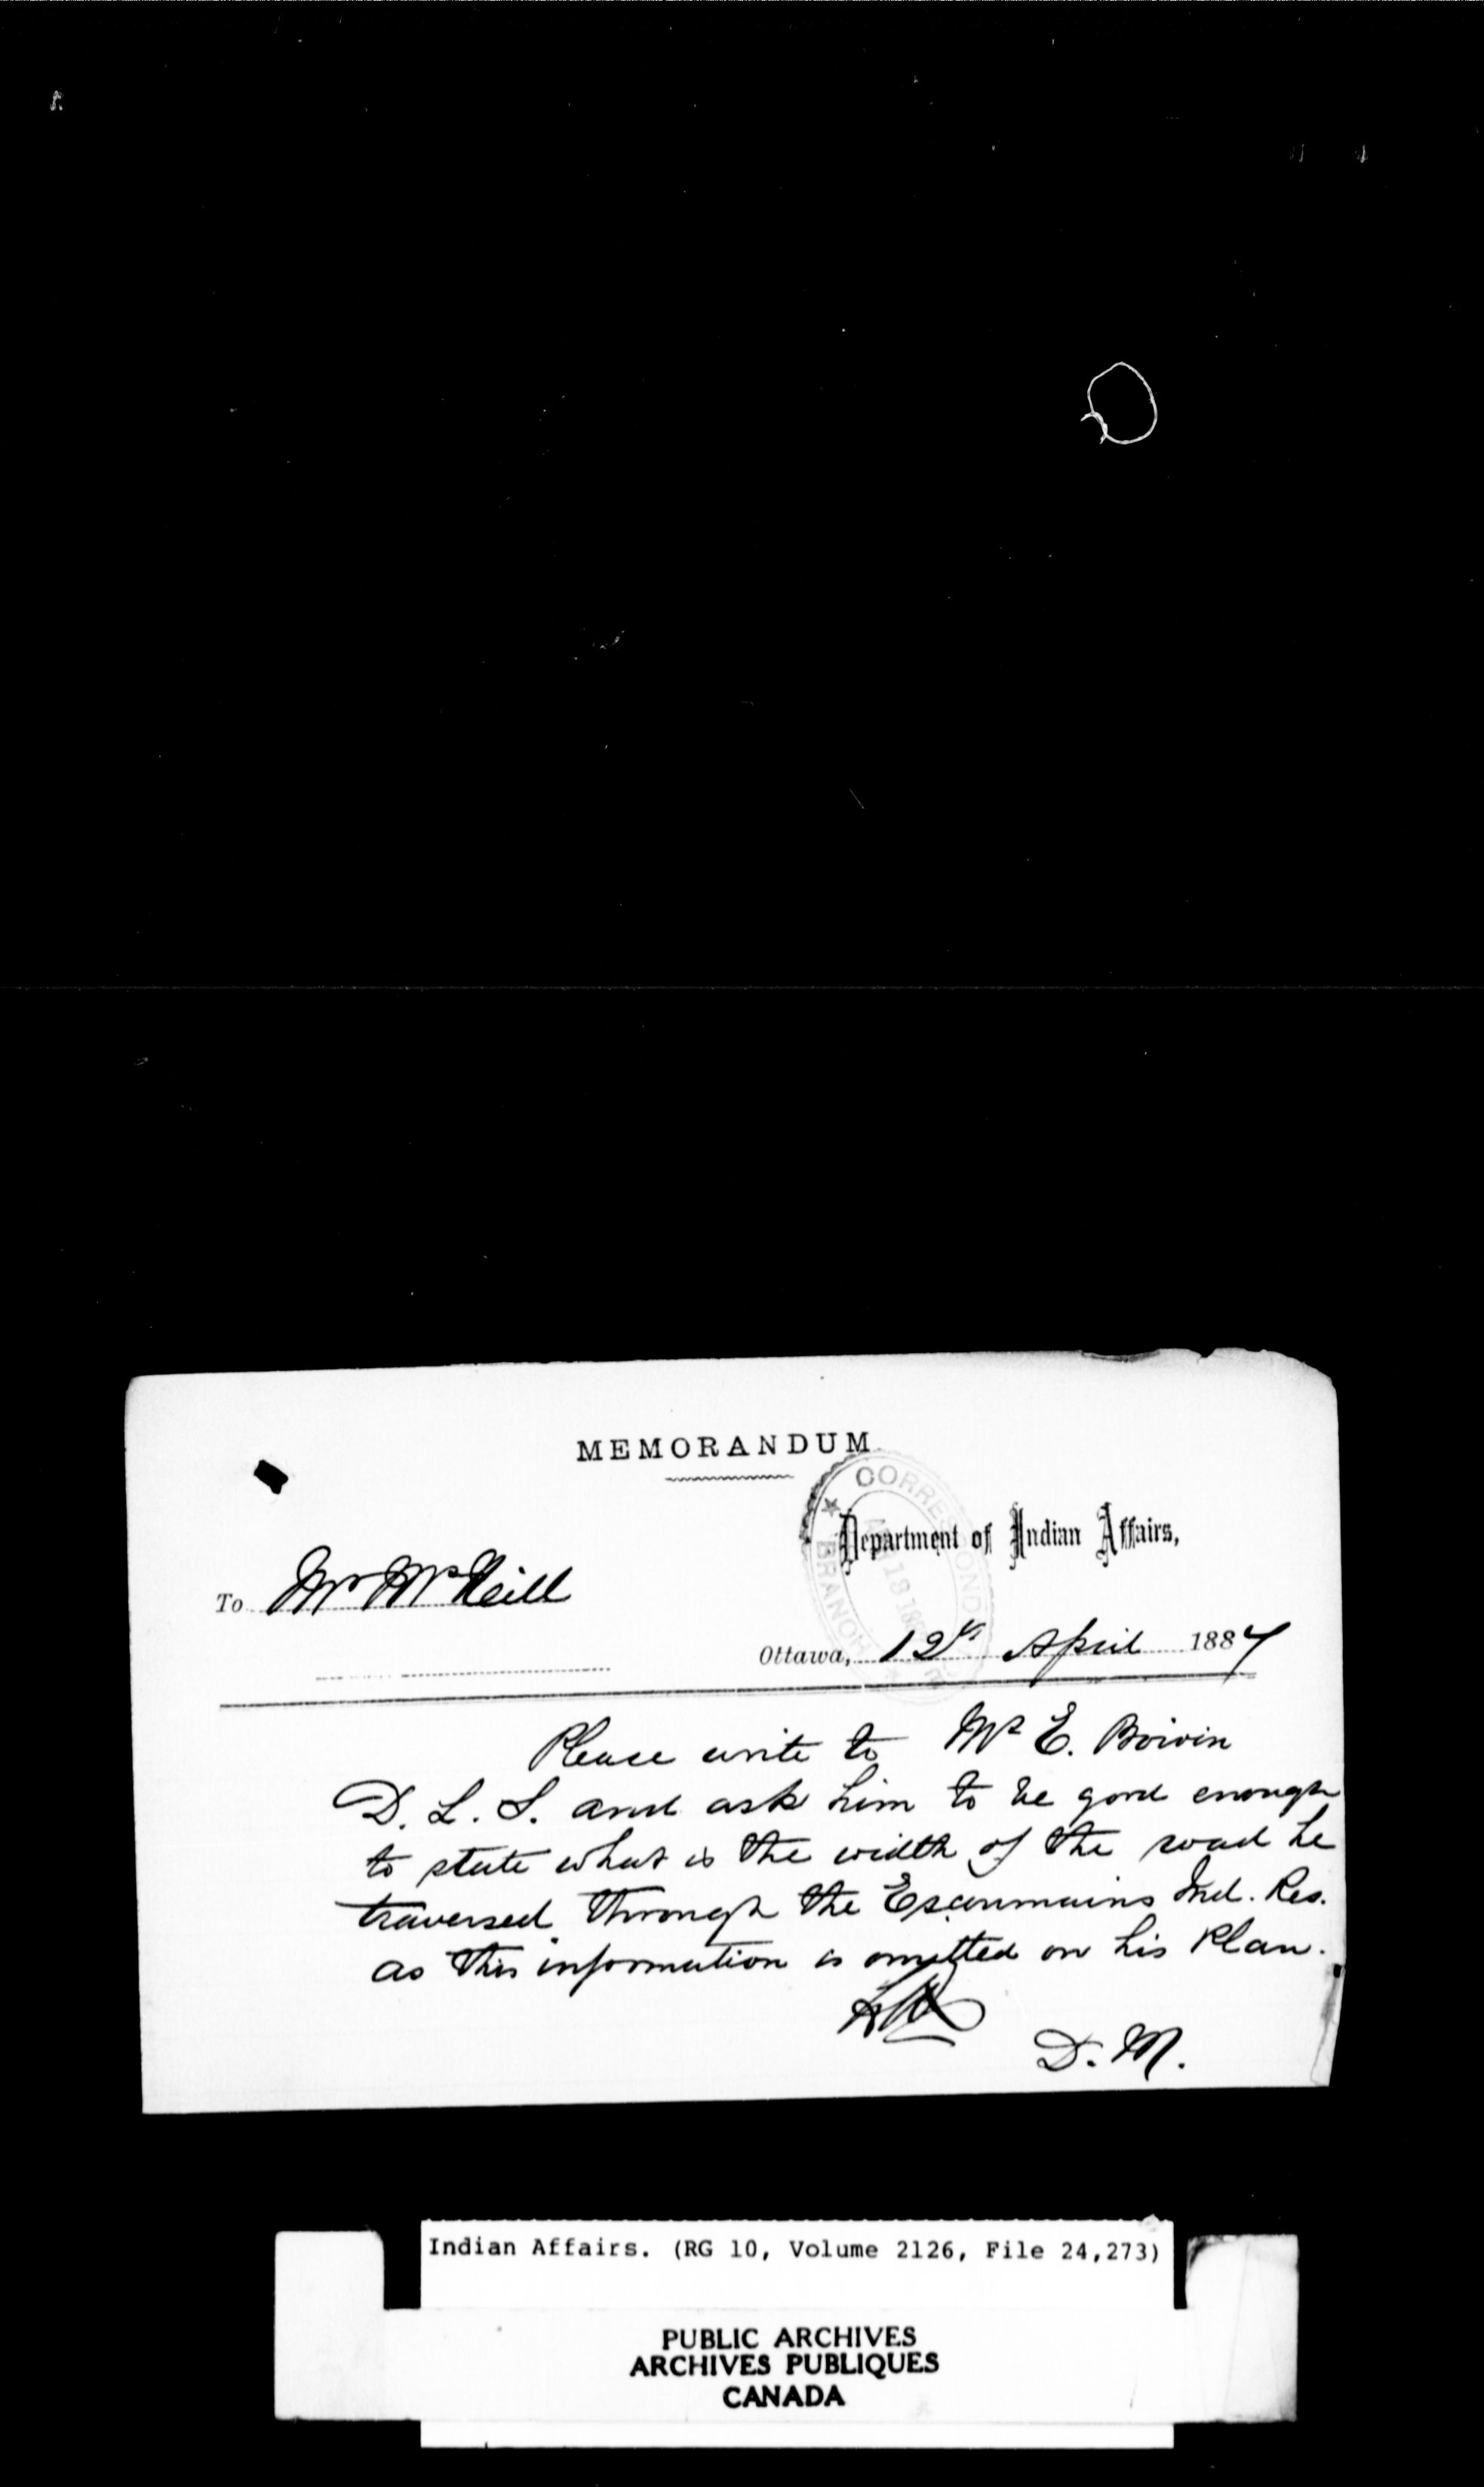 MEMORANDUM
Department of Indian Affairs,
To Mr McNeill
Ottawa, 12th April 1887
CORRESPONDENCE BRANCH
Please write to Mr E. Boivin
D. L. S. and ask him to be good enough
to state what is the width of the road he
traversed through the Escoumains Ind. Res.
as this information is omitted on his Plan.
D. M.
Indian Affairs. (RG 10, Volume 2126, File 24,273)
PUBLIC ARCHIVES
ARCHIVES PUBLIQUES
CANADA